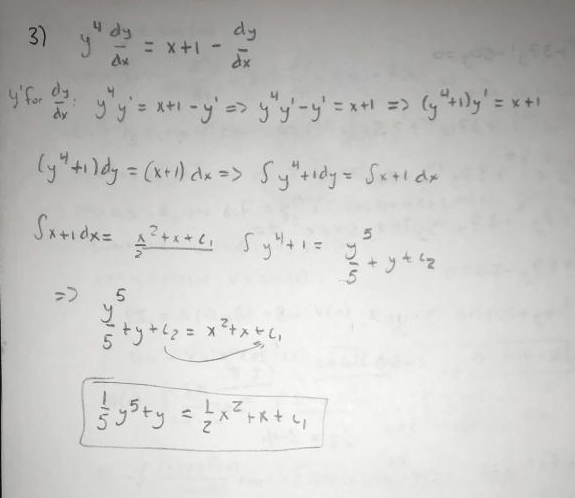 3) y⁴ dy/dx = x+1 - dy/dx
y' for dy/dx: y⁴y' = x+1 - y' => y⁴y' - y' = x+1 => (y⁴+1)y' = x+1
(y⁴+1)dy = (x+1)dx => ∫y⁴+1dy = ∫x+1 dx
∫x+1dx = x²+x+c₁/2 ∫y⁴+1 = y⁵/5 + y + c₂
=> y⁵/5 + y + c₂ = x²+x+c₁
1/5 y⁵+y = 1/2 x²+x+c₁